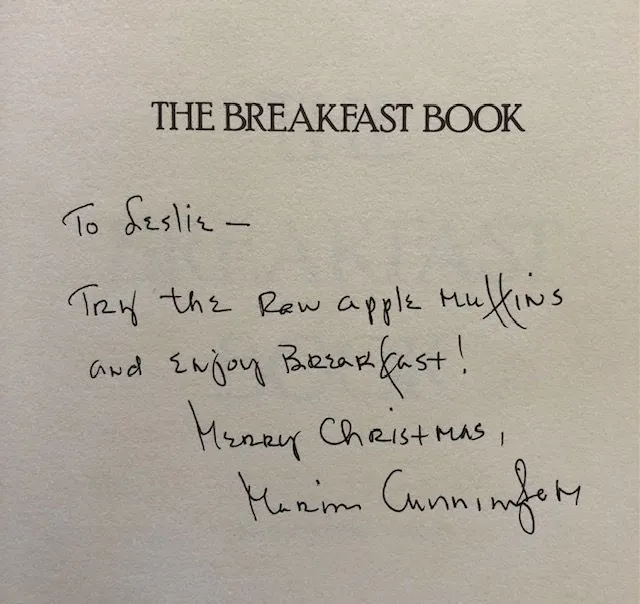 THE BREAKFAST BOOK
To Leslie —
Try the Raw apple Muffins
and Enjoy Breakfast!
Merry Christmas,
Marion Cunningham